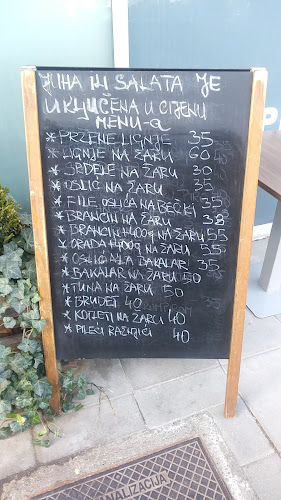 JUHA ILI SALATA JE
UKLJUČENA U CIJENU
MENU-a
* PRŽENE LIGNJE 35
* LIGNJE NA ŽARU 60
* SRDELE NA ŽARU 30
* OSLIĆ NA ŽARU 35
* FILE OSLIĆA NA BEČKI 35
* BRANCIN NA ŽARU 38
* BRANCIN 400g NA ŽARU 55
* ORADA 400g NA ŽARU 55
* OSLIĆ ALA BAKALAR 35
* BAKALAR NA ŽARU 50
* TUNA NA ŽARU 50
* BRUDET 40
* KOTLETI NA ŽARU 40
* PILEĆI RAŽNJIĆI 40
KANALIZACIJA